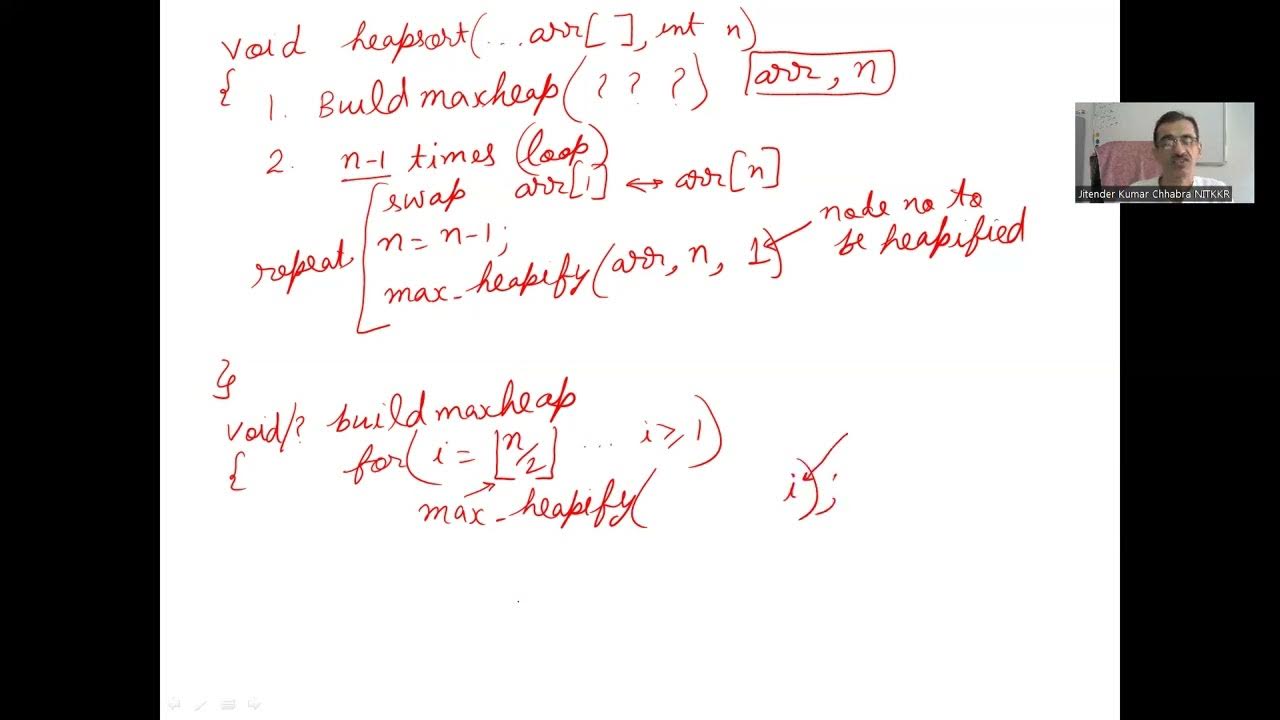 void heapsort(... arr[ ], int n)
{
1. Buildmaxheap(? ? ?) arr, n
2. n-1 times (loop)
swap arr[1] ↔ arr[n]
repeat
n = n-1;
max-heapify(arr, n, 1)
node no to
be heapified
}
void/? buildmaxheap
{ for( i = ⌊n/2⌋ ... i ≥ 1)
max-heapify( i);
Jitender Kumar Chhabra NITKKR